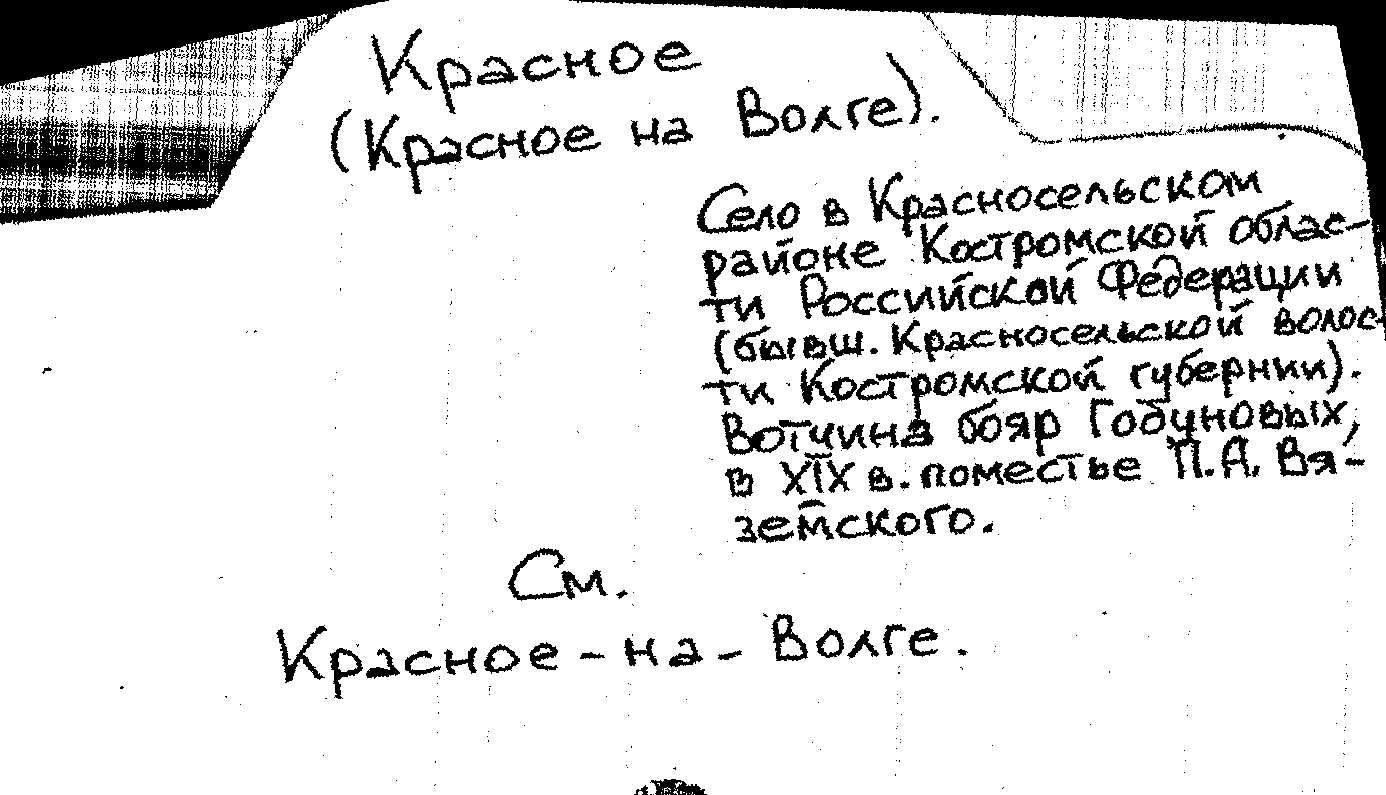 Красное
(Красное на Волге).
Село в Красносельском
районе Костромской облас-
ти Российской Федерации
(бывш. Красносельской волос-
ти Костромской губернии).
Вотчина бояр Годуновых,
в XIX в. поместье П.А. Вя-
земского.
См.
Красное-на-Волге.